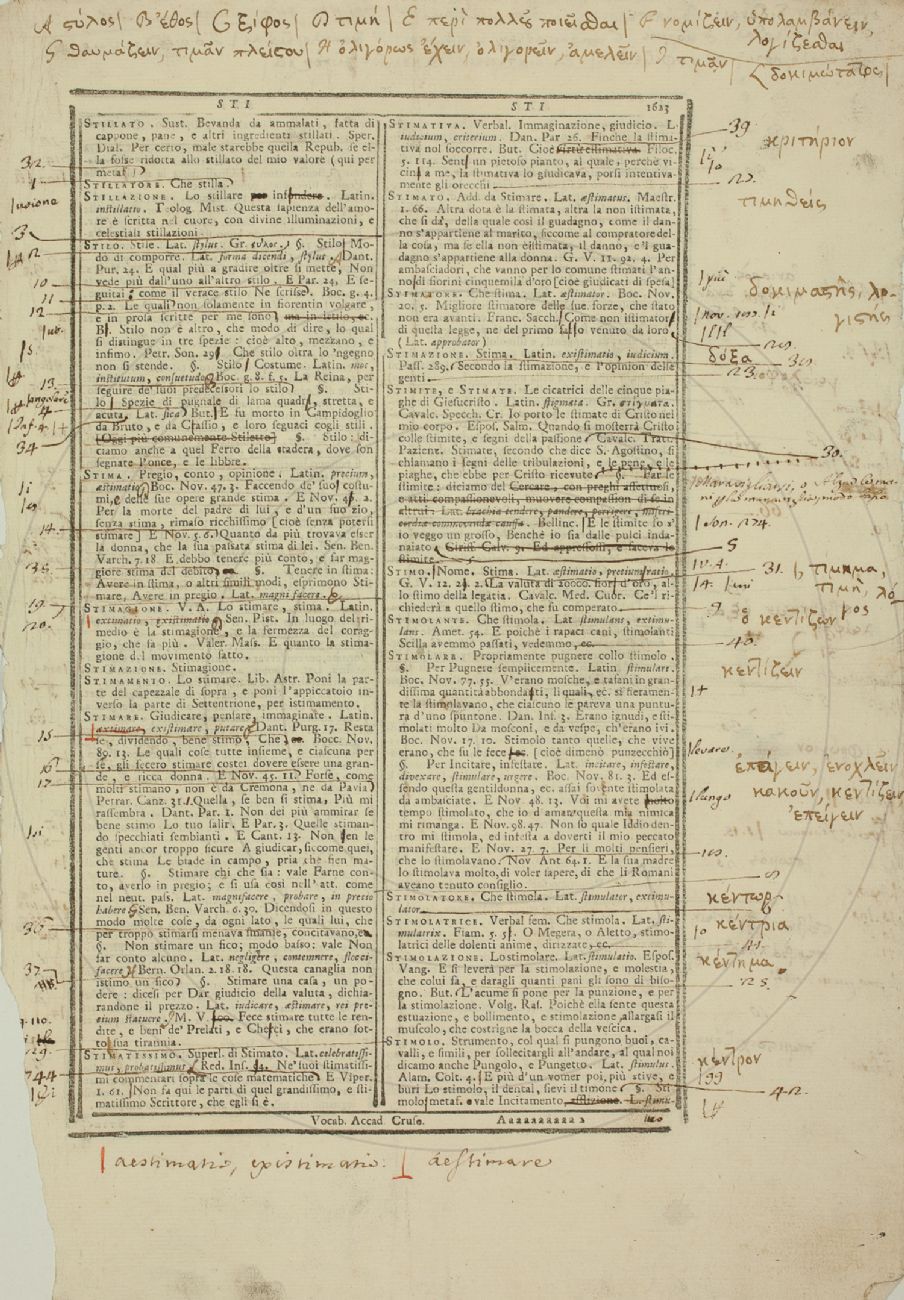 A στύλος | B ἔθος | C ξίφος | D τιμή | E περὶ πολλοῦ ποιεῖσθαι | F νομίζειν, ὑπολαμβάνειν,
λογίζεσθαι
G θαυμάζειν, τιμᾶν πλείστου | H ὀλιγώρως ἔχειν, ὀλιγορεῖν, ἀμελεῖν | I τιμᾶν |
δοκιμώτατος |
STI STI 1623
STILLATO. Sust. Bevanda da ammalati, fatta di
cappone, pane, e altri ingredienti stillati. Sper.
Dial. Per certo, male starebbe quella Repub. se el-
la fosse ridotta allo stillato del mio valore (qui per
metaf.)
STILLATORE. Che stilla.
STILLAZIONE. Lo stillare
instillatio. Teolog. Mist. Questa sapienza dell'amo-
re è scritta nel cuore, con divine illuminazioni, e
celestiali stillazioni.
STILO. Stile. Lat. stylus. Gr. §. Stilo Mo-
do di comporre. Lat. forma dicendi, stylus. Dant.
Pur. 24. E qual più a gradire oltre si mette, Non
vede più dall'uno all'altro stilo. E Par. 24. E se-
guitai: come il verace stilo Ne scrisse. Boc. g. 4.
p. 2. Le quali non solamente in fiorentin volgare,
e in prosa scritte per me sono
B. Stilo non è altro, che modo di dire, lo qual
si distingue in tre spezie: cioè alto, mezzano, e
infimo. Petr. Son. 29. Che stilo oltra lo 'ngegno
non si stende. §. Stilo Costume. Latin. mos,
institutum, consuetudo. Boc. g. 8. f. 5. La Reina, per
seguire de' suoi predecessori lo stilo §. Sti-
lo Spezie di pugnale di lama quadra, stretta, e
acuta. Lat. sica But. E fu morto in Campidoglio
da Bruto, e da Cassio, e loro seguaci cogli stili.
[Oggi più comunemente Stiletto] §. Stilo: di-
ciamo anche a quel Ferro della stadera, dove son
segnate l'once, e le libbre.
STIMA. Pregio, conto, opinione. Latin. precium,
æstimatio. Boc. Nov. 47. 3. Faccendo de' suoi costu-
mi, e delle sue opere grande stima. E Nov. 43. 2.
Per la morte del padre di lui, e d'un suo zio,
senza stima, rimaso ricchissimo [cioè senza potersi
stimare] E Nov. 5. 6. Quanto da più trovava esser
la donna, che la sua passata stima di lei. Sen. Ben.
Varch. 7. 18 E debbo tenere più conto, e far mag-
giore stima del debito §. Tenere in stima:
Avere in stima, o altri simili modi, esprimono Sti-
mare, Avere in pregio. Lat. magni facere.
STIMAGIONE. V. A. Lo stimare, stima. Latin.
extimatio, existimatio. Sen. Pist. In luogo del ri-
medio è la stimagione, e la fermezza del corag-
gio, che la più. Valer. Mass. E quanto la stima-
gione del movimento fatto.
STIMAZIONE. Stimagione.
STIMAMENTO. Lo stimare. Lib. Astr. Poni la par-
te del capezzale di sopra, e poni l'appiccatoio in-
verso la parte di Settentrione, per istimamento.
STIMARE. Giudicare, pensare, immaginare. Latin.
extimare, existimare, putare. Dant. Purg. 17. Resta
se, dividendo, bene stimo, Che Bocc. Nov.
89. 13. Le quali cose tutte insieme, e ciascuna per
se, gli fecero stimare costei dovere essere una gran-
de, e ricca donna. E Nov. 45. 11. Forse, come
molti stimano, non è da Cremona, ne da Pavia
Petrar. Canz. 31. 1. Quella, se ben si stima, Più mi
rassembra. Dant. Par. 1. Non dei più ammirar se
bene stimo Lo tuo salir. E Par. 3. Quelle stiman-
do specchiati sembianti. E Cant. 13. Non sien le
genti ancor troppo sicure A giudicar, siccome quei,
che stima Le biade in campo, pria che fien ma-
ture. §. Stimare chi che sia: vale Farne con-
to, averlo in pregio; e si usa così nell'att. come
nel neut. pass. Lat. magnifacere, probare, in precio
habere. Sen. Ben. Varch. 6. 30. Dicendosi in questo
modo molte cose, da ogni lato, le quali lui, che
per troppo stimarsi menava smanie, concitavano,
§. Non stimare un fico; modo basso: vale Non
far conto alcuno. Lat. negligere, contemnere, flocci-
facere. Bern. Orlan. 2. 18. 18. Questa canaglia non
istimo un fico §. Stimare una casa, un po-
dere: dicesi per Dar giudicio della valuta, dichia-
randone il prezzo. Lat. indicare, æstimare, rei pre-
cium statuere. M. V. Fece stimare tutte le ren-
dite, e beni de' Prelati, e Cherici, che erano sot-
to sua tirannia.
STIMATISSIMO. Superl. di Stimato. Lat. celebratissi-
mus, probatissimus. Red. Ins. 84. Ne' suoi stimatissi-
mi commentari sopra le cose matematiche E Viper.
1. 61. Non fa qui le parti di quel grandissimo, e sti-
matissimo Scrittore, che egli si è.
STIMATIVA. Verbal. Immaginazione, giudicio. L.
iudicium, criterium. Dan. Par 26. Finche la stima-
tiva nol soccorre. But. Cioè Filoc.
5. 114. Sentì un pietoso pianto, al quale, perchè vi-
cina a me, la stimativa lo giudicava, porsi intentiva-
mente gli orecchi
STIMATO. Add. da Stimare. Lat. æstimatus. Maestr.
1. 66. Altra dota è la stimata, altra la non istimata,
che si dà, della quale così il guadagno, come il dan-
no s'appartiene al marito, siccome al compratore del-
la cosa, ma se ella non è istimata, il danno, e 'l gua-
dagno s'appartiene alla donna. G. V. 11. 92. 4. Per
ambasciadori, che vanno per lo comune stimati l'an-
no, di fiorini cinquemila d'oro [cioè giudicati di spesa]
STIMATORE. Che stima. Lat. æstimator. Boc. Nov.
20. 5. Migliore stimatore delle sue forze, che stato
non era avanti. Franc. Sacch. Come non istimatori
di questa legge, ne del primo sasso venuto da loro
(Lat. approbator)
STIMAZIONE. Stima. Latin. existimatio, iudicium.
Pass. 289. Secondo la stimazione, e l'opinion delle
genti.
STIMITE, e STIMATE. Le cicatrici delle cinque pia-
ghe di Giesucristo. Latin. stigmata. Gr. στίγματα.
Cavalc. Specch. Cr. Io porto le stimate di Cristo nel
mio corpo. Espos. Salm. Quando si mosterrà Cristo
colle stimite, e segni della passione. Cavalc. Tratt.
Pazient. Stimate, secondo che dice S. Agostino, si
chiamano i segni delle tribulazioni, e le pene, e le
piaghe, che ebbe per Cristo ricevute §. Far le
stimite: diciamo del Cercare, con preghi affettuosi,
e atti compassionevoli, muovere compassion di se in
altrui. Lat. brachia tendere, pandere, porrigere, miseri-
cordiæ commovendæ caussa. Bellinc. E le stimite fo s'
io veggo un grosso, Benchè io sia dalle pulci inda-
naiato Ciriff. Calv. 9. Ed appressossi, e faceva le
stimite.
STIMO. Nome. Stima. Lat. æstimatio, pretium, ratio.
G. V. 12. 2. La valuta di fior. d'oro, al-
lo stimo della legatia. Cavalc. Med. Cuor. Ce 'l ri-
chiederà a quello stimo, che fu comperato.
STIMOLANTE. Che stimola. Lat stimulans, extimu-
lans. Amet. 54. E poichè i rapaci cani, stimolanti
Scilla avemmo passati, vedemmo, ec.
STIMOLARE. Propriamente pugnere collo stimolo.
§. Per Pugnere semplicemente. Latin. stimulare.
Boc. Nov. 77. 55. V'erano mosche, e tafani in gran-
dissima quantità abbondati, li quali, ec. sì fieramen-
te la stimolavano, che ciascuno le pareva una puntu-
ra d'uno spuntone. Dan. Inf. 3. Erano ignudi, e sti-
molati molto Da mosconi, e da vespe, ch'erano ivi.
Boc. Nov. 17. 10. Stimolo tanto quelle, che vive
erano, che su le fece [cioè dimenò punzecchiò]
§. Per Incitare, infestare. Lat. incitare, infestare,
divexare, stimulare, urgere. Boc. Nov. 81. 3. Ed es-
sendo questa gentildonna, ec. assai sovente stimolata
da ambasciate. E Nov. 48. 13. Voi mi avete
tempo stimolato, che io d'amar questa mia nimica
mi rimanga. E Nov. 98. 47. Non so quale Iddio den-
tro mi stimola, ed infesta a doverti il mio peccato
manifestare. E Nov. 27. 7. Per li molti pensieri,
che lo stimolavano. Nov. Ant 64. 1. E la sua madre
lo stimolava molto, di voler sapere, di che li Romani
aveano tenuto consiglio.
STIMOLATORE. Che stimola. Lat. stimulator, extimu-
lator
STIMOLATRICE. Verbal fem. Che stimola. Lat. sti-
mulatrix. Fiam. 5. 51. O Megera, o Aletto, stimo-
latrici delle dolenti anime, dirizzate, ec.
STIMOLAZIONE. Lo stimolare. Lat. stimulatio. Espos.
Vang. E si leverà per la stimolazione, e molestia,
che colui fa, e daragli quanti pani gli sono di biso-
gno. But. L'acume si pone per la punzione, e per
la stimolazione. Volg. Ras. Poichè ella sente questa
estuazione, e bollimento, e stimolazione, allargasi il
muscolo, che costrigne la bocca della vescica.
STIMOLO. Strumento, col qual si pungono buoi, ca-
valli, e simili, per sollecitargli all'andare, al qual noi
dicamo anche Pungolo, e Pungetto. Lat. stimulus.
Alam. Colt. 4. E più d'un vomer poi, più stive, e
buri Lo stimolo, il dental devi il timone §. Sti-
molo: metaf. vale Incitamento, afflizione. L. stimu-
Vocab. Accad. Crusc. Aaaaaaaaaa 2
κριτήριον
τιμηθείς
δοκιμαστής, λο-
γιστής
δόξα
τίμημα,
τιμή, λό-
γος
ὁ κεντίζων
κεντίζειν
ἐπάγειν, ἐνοχλεῖν
κακοῦν, κεντίζειν
ἐπείγειν
κέντωρ
κέντρια
κέντημα
κέντρον
aestimatio, existimatio. aestimare